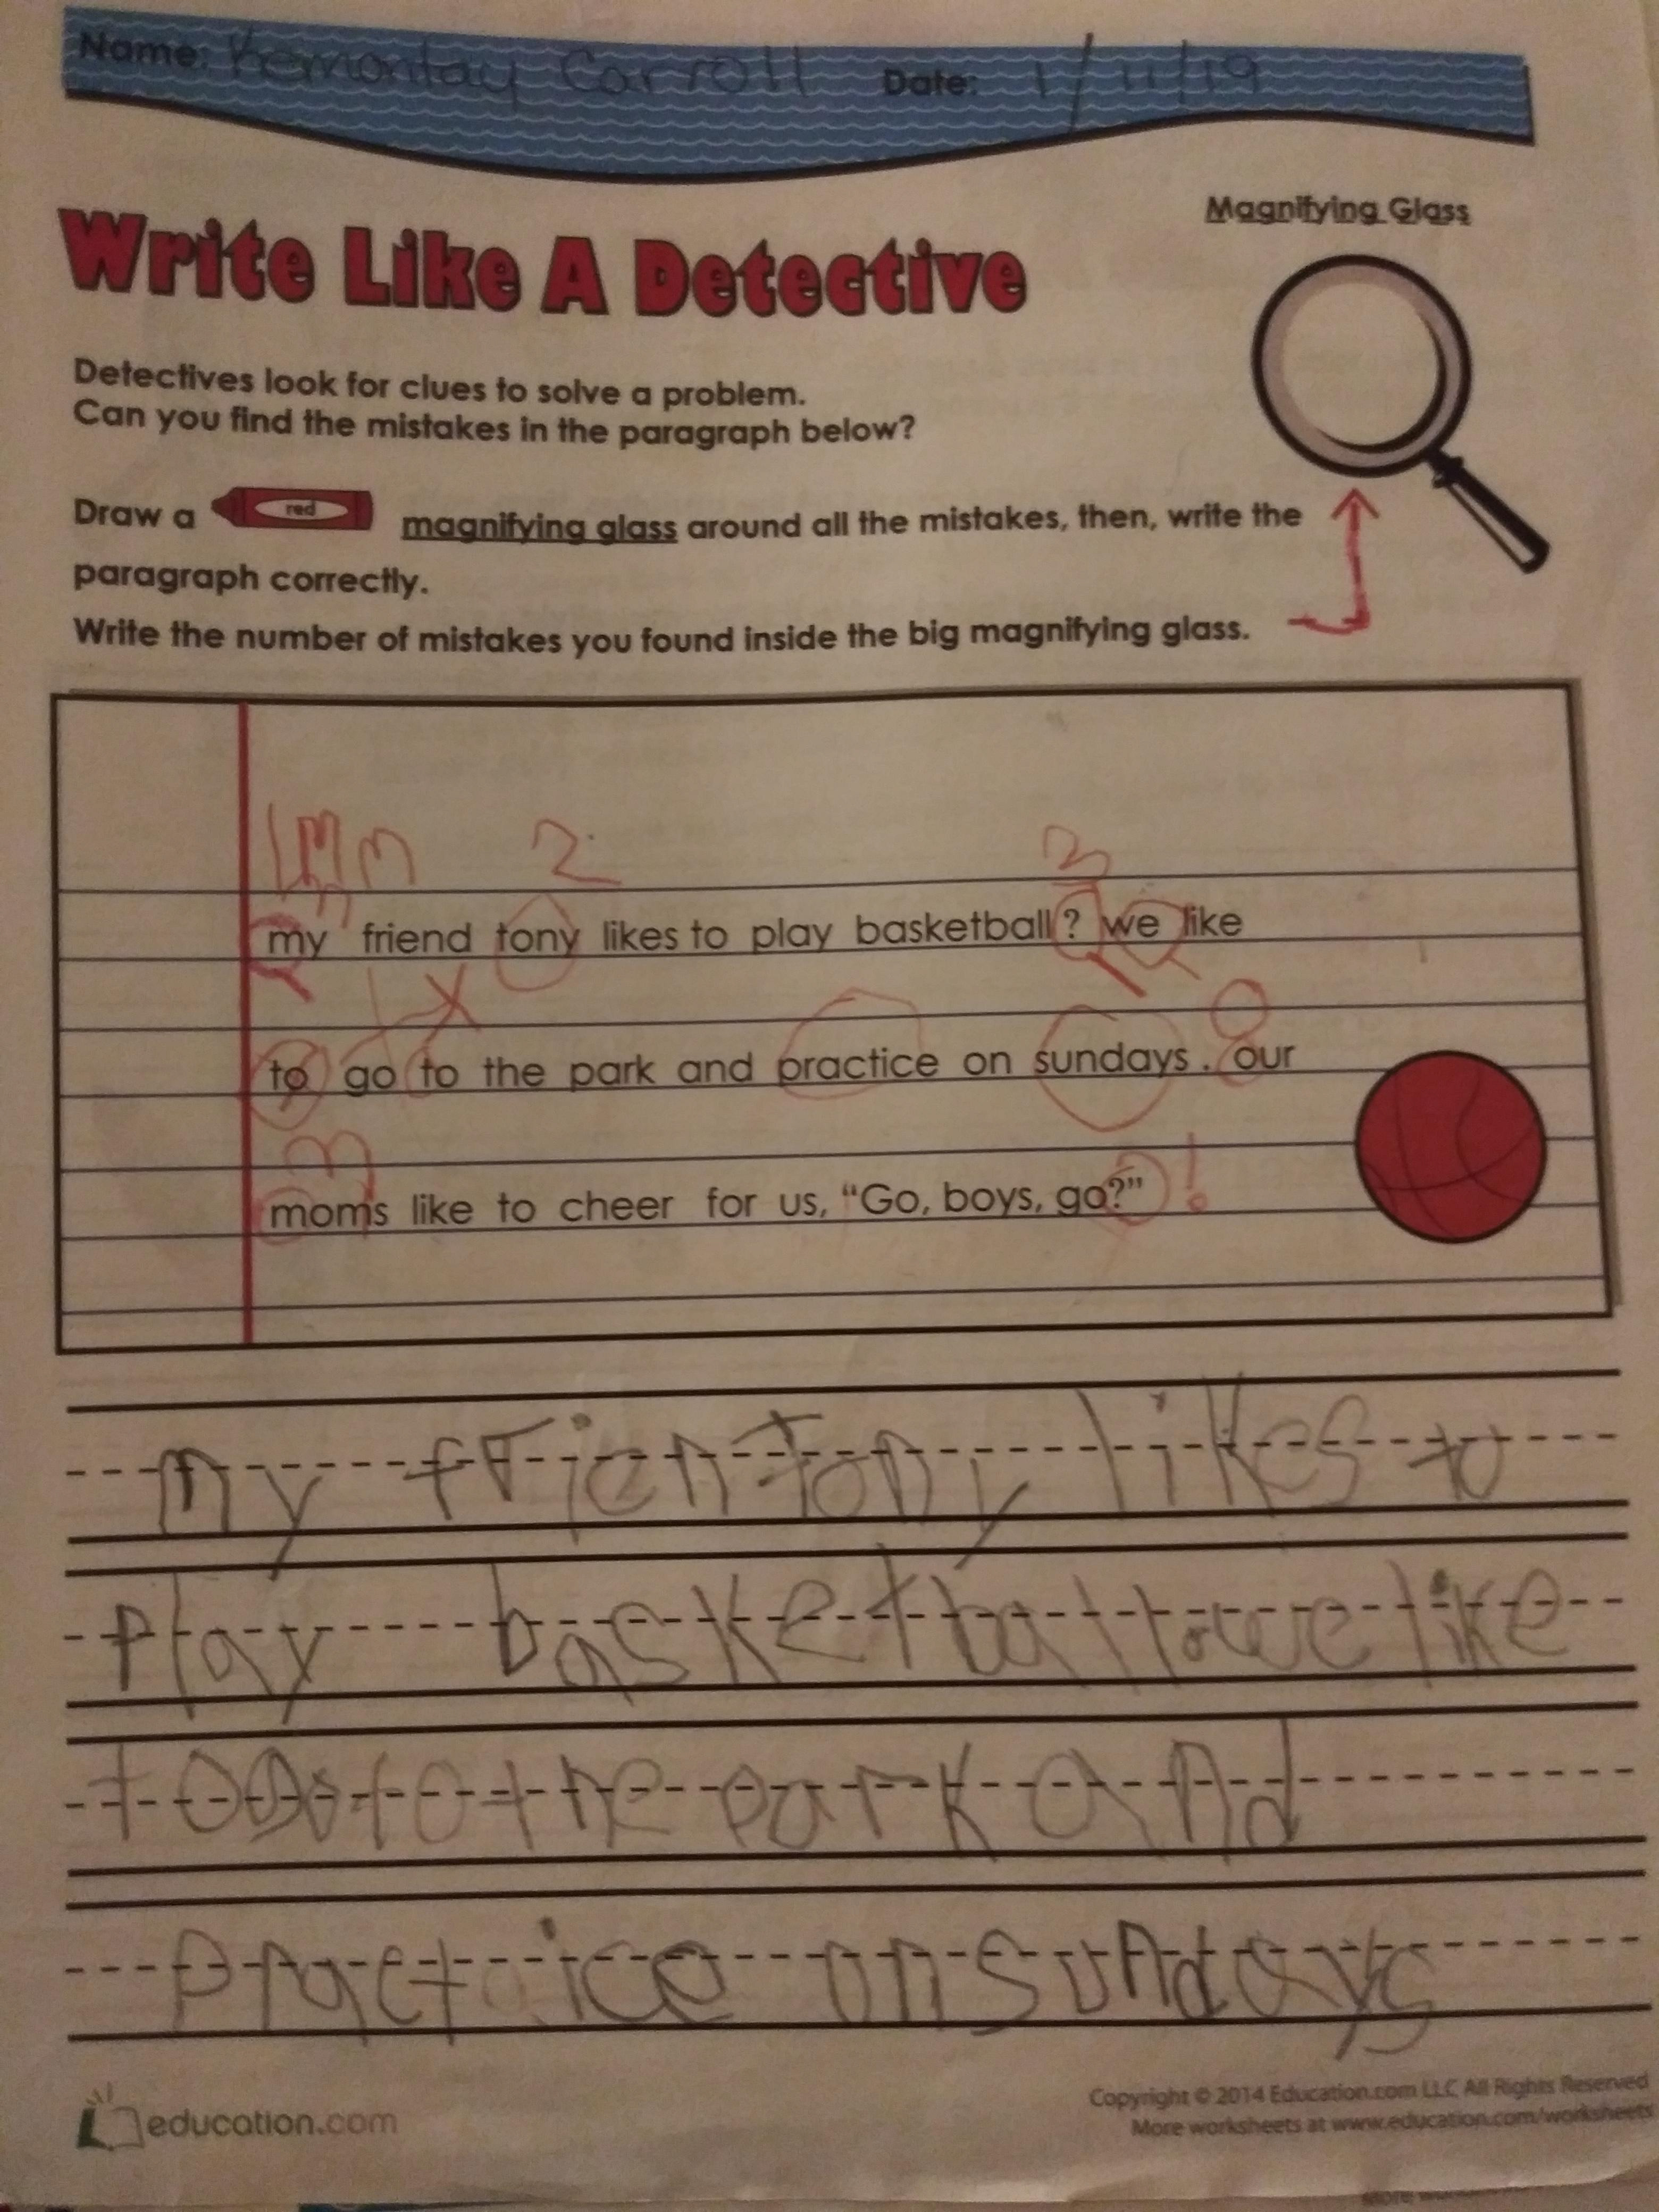 Name: Kemontay Carroll Date: 1/11/19
Magnifying Glass
Write Like A Detective
Detectives look for clues to solve a problem.
Can you find the mistakes in the paragraph below?
Draw a red magnifying glass around all the mistakes, then, write the
paragraph correctly.
Write the number of mistakes you found inside the big magnifying glass.
2 3
my friend tony likes to play basketball? we like
to go to the park and practice on sundays. our
m
moms like to cheer for us, “Go, boys, go?” !
my frien Tony likes to
Play basketball we like
to to the park and
Practice on Sundays
education.com
Copyright © 2014 Education.com LLC All Rights Reserved
More worksheets at www.education.com/worksheets